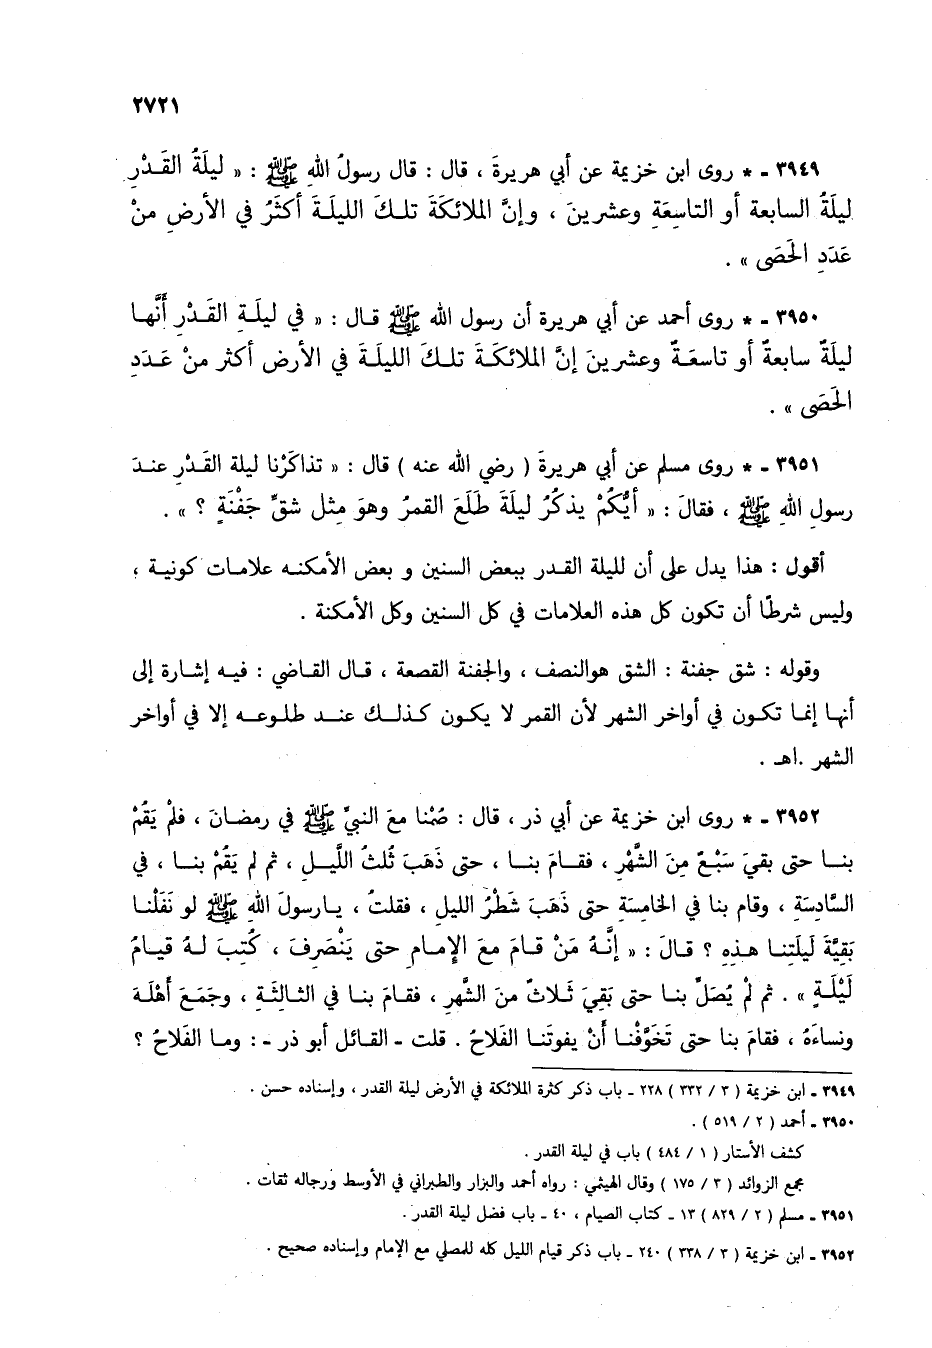 ٢٧٢١
٣٩٤٩ ـ * روى ابن خزيمة عن أبي هريرةَ ، قال : قال رسولُ اللهِ ﷺ : « ليلَةُ القَدْرِ
ليلَةُ السابعة أو التاسعَةِ وعشرينَ ، وإنَّ الملائكَةَ تلكَ الليلَةَ أكثَرُ في الأرضِ منْ
عَدَدِ الحَصَى » .
٣٩٥٠ ـ * روى أحمد عن أبي هريرة أن رسول الله ﷺ قال : « في ليلَةِ القَدْرِ أَنَّها
ليلَةٌ سابعةٌ أو تاسعَةٌ وعشرينَ إنَّ الملائكَةَ تلكَ الليلَةَ في الأرض أكثر منْ عَدَدِ
الحَصَى » .
٣٩٥١ ـ * روى مسلم عن أبي هريرةَ ( رضي الله عنه ) قال : « تذاكَرْنا ليلة القَدْرِ عندَ
رسولِ اللهِ ﷺ ، فقالَ : « أيُّكُمْ يذكُرُ ليلَةَ طَلَعَ القمرُ وهوَ مِثل شقِّ جَفْنَةٍ ؟ » .
أقول : هذا يدل على أن لليلة القدر ببعض السنين و بعض الأمكنه علامات كونية ،
وليس شرطًا أن تكون كل هذه العلامات في كل السنين وكل الأمكنة .
وقوله : شق جفنة : الشق هوالنصف ، والجفنة القصعة ، قال القاضي : فيه إشارة إلى
أنها إنما تكون في أواخر الشهر لأن القمر لا يكون كذلك عند طلوعه إلا في أواخر
الشهر .اهـ .
٣٩٥٢ ـ * روى ابن خزيمة عن أبي ذر ، قال : صُمْنا معَ النبيِّ ﷺ في رمضانَ ، فلمْ يَقُمْ
بنا حتى بقيَ سَبْعٌ مِنَ الشَّهْرِ ، فقامَ بنا ، حتى ذَهَبَ ثُلثُ اللَّيلِ ، ثم لم يَقُمْ بنا ، في
السَّادِسَةِ ، وقام بنا في الخامِسَةِ حتى ذَهَبَ شَطْرُ الليلِ ، فقلتُ ، يارسولَ اللهِ ﷺ لو نَفَلْنا
بَقِيَّةَ ليلَتِنا هذِهِ ؟ قالَ : « إنَّهُ مَنْ قامَ معَ الإمامِ حتى يَنْصَرِفَ ، كُتِبَ لهُ قيامُ
لَيْلَةٍ » . ثم لمْ يُصَلِّ بنا حتى بَقِيَ ثَلاثٌ منَ الشَّهرِ ، فقامَ بنا في الثالِثَةِ ، وجَمَعَ أهْلَهُ
ونساءَهُ ، فقامَ بنا حتى تَخَوَّفْنا أنْ يفوتَنا الفَلاحُ . قلت ـ القائل أبو ذر ـ : وما الفَلاحُ ؟
٣٩٤٩ ـ ابن خزيمة ( ٣ / ٣٣٢ ) ٢٢٨ ـ باب ذكر كثرة الملائكة في الأرض ليلة القدر ، وإسناده حسن .
٣٩٥٠ ـ أحمد ( ٢ / ٥١٩ ) .
كشف الأستار ( ١ / ٤٨٤ ) باب في ليلة القدر .
مجمع الزوائد ( ٣ / ١٧٥ ) وقال الهيثمي : رواه أحمد والبزار والطبراني في الأوسط ورجاله ثقات .
٣٩٥١ ـ مسلم ( ٢ / ٨٢٩ ) ١٣ ـ كتاب الصيام ، ٤٠ ـ باب فضل ليلة القدر .
٣٩٥٢ ـ ابن خزيمة ( ٣ / ٣٣٨ ) ٢٤٠ ـ باب ذكر قيام الليل كله للمصلي مع الإمام وإسناده صحيح .